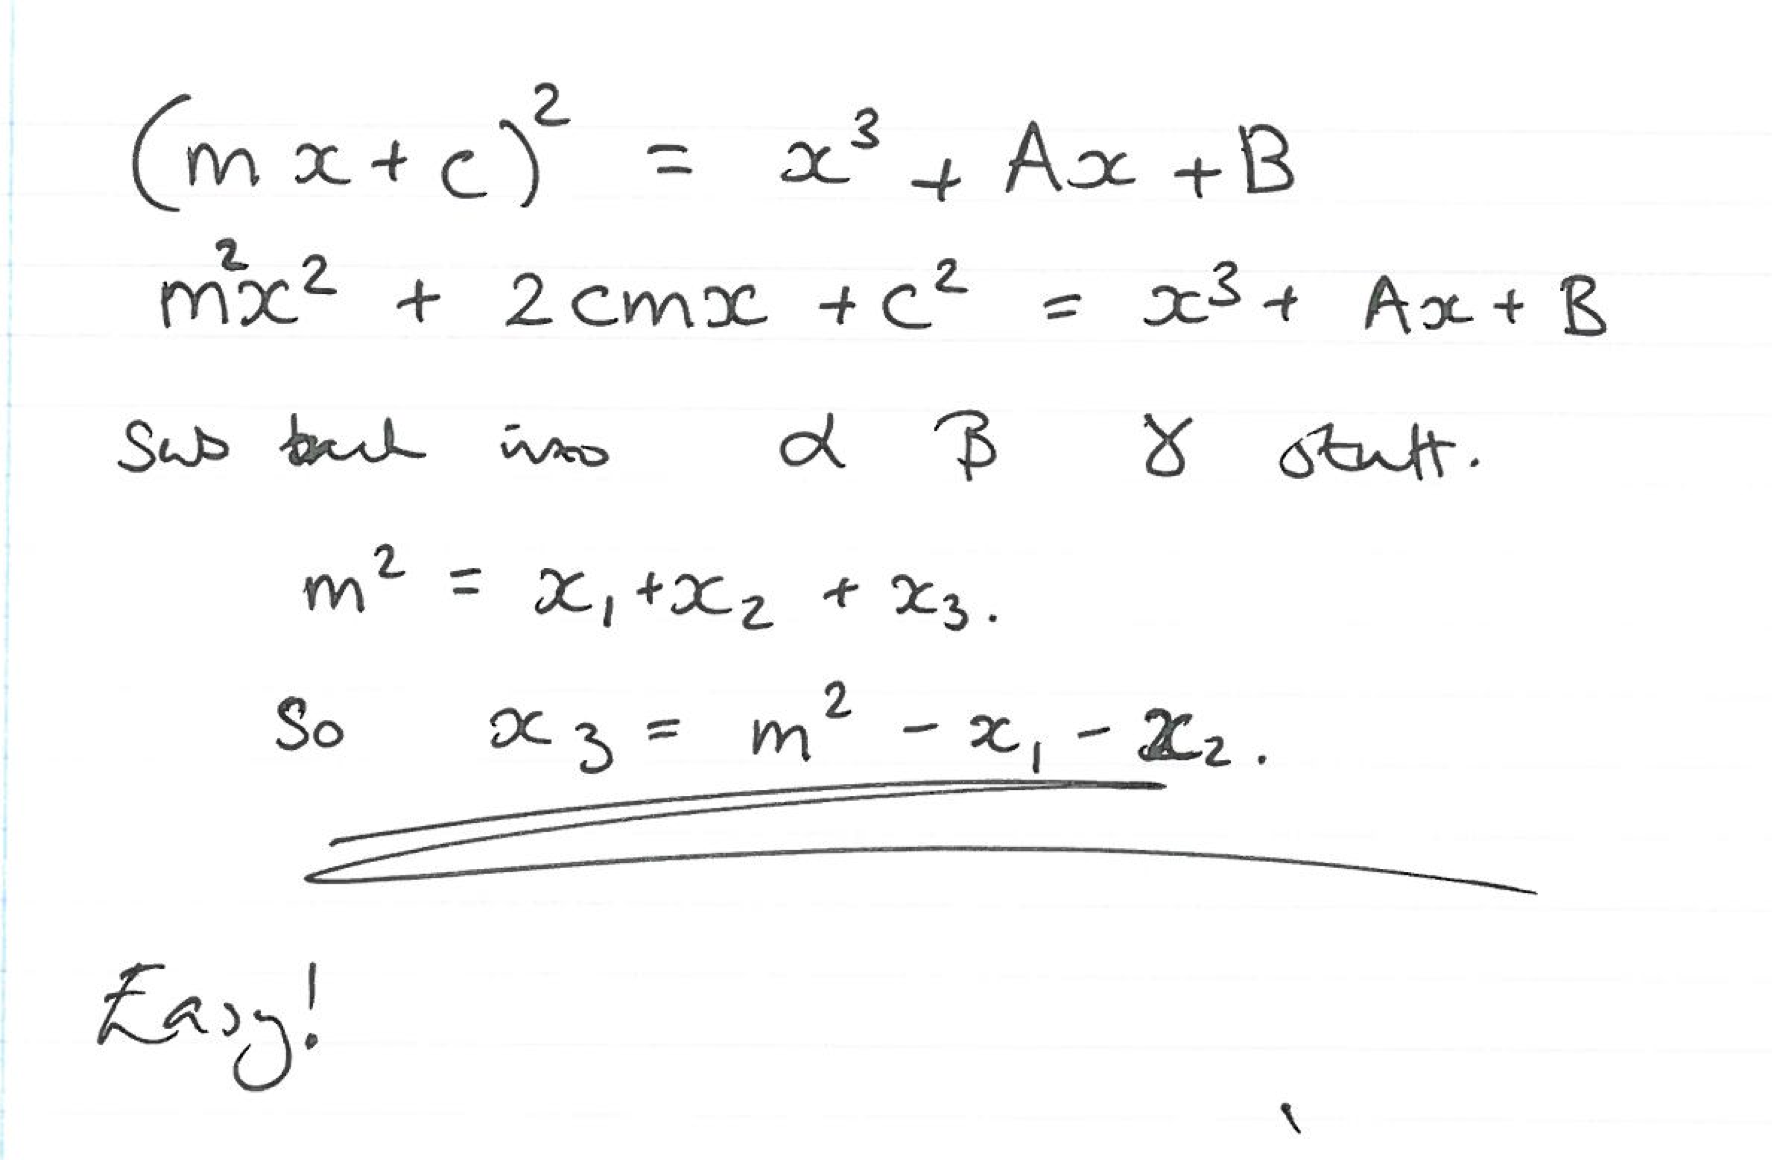 (mx+c)² = x³ + Ax + B
m²x² + 2cmx + c² = x³ + Ax + B
Sub back into α β γ stuff.
m² = x₁ + x₂ + x₃.
So x₃ = m² - x₁ - x₂.
Easy!